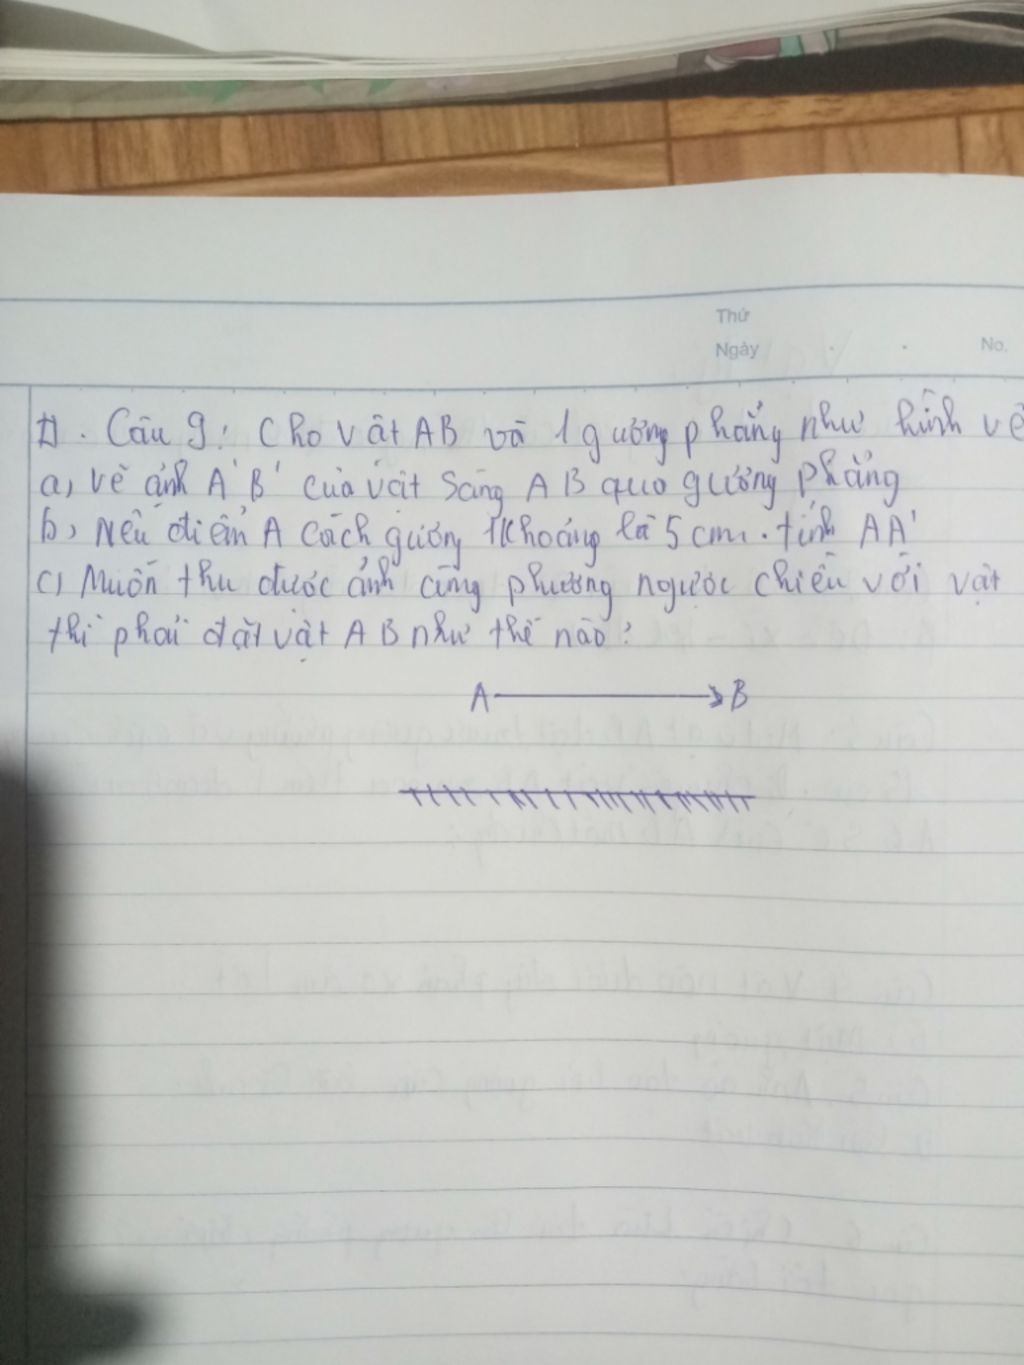 Thứ
Ngày
No.
II. Câu 9: Cho vật AB và 1 gương phẳng như hình vẽ
a, vẽ ảnh A'B' của vật sáng AB qua gương phẳng
b, Nếu điểm A cách gương 1 khoảng là 5 cm. tính AA'
c, Muốn thu được ảnh cùng phương ngược chiều với vật
thì phải đặt vật AB như thế nào?
A B